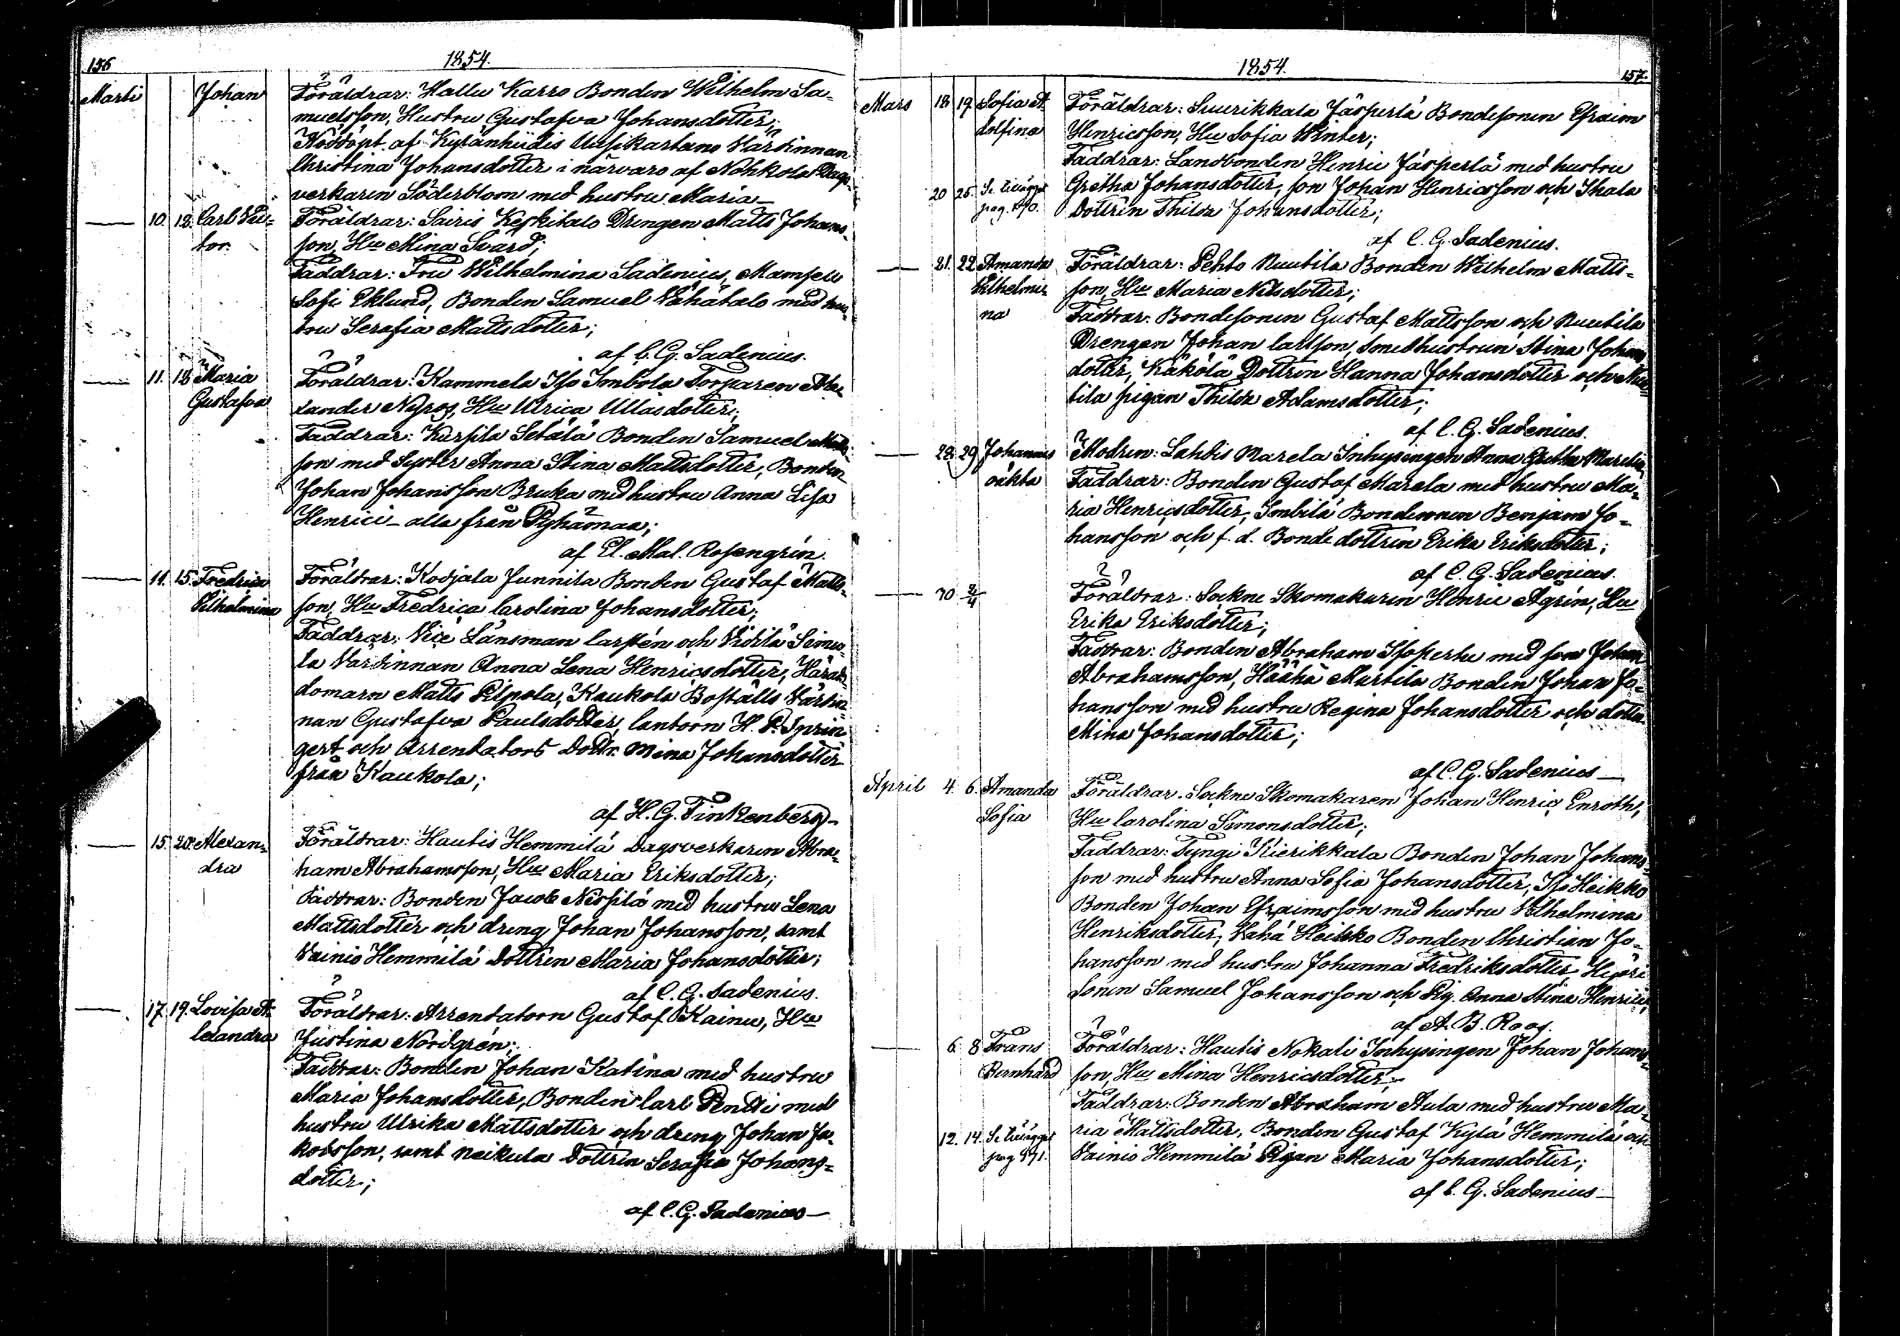 156
1854.
Marti Johan Föräldrar: Hallu Karro Bonden Wilhelm Sa-
muelsson, Hustru Gustafva Johansdotter;
Nöddöpt af Kylänhiidis Uusikartano Värdinnan
Christina Johansdotter i närvaro af Nohkola Dags-
verkaren Söderblom med hustru Maria
10. 12. Carl Vic- Föräldrar: Sairis Keskitalo Drengen Matts Johans-
tor son, Hu Mina Svärd;
Faddrar: Fru Wilhelmina Sadenius, Mamsell
Sofi Eklund, Bonden Samuel Vähätalo med hus-
tru Serafia Mattsdotter;
af C. G. Sadenius.
11. 12 Maria Föräldrar: Kammela Iso Imbola Torparen Ale-
Gustafva xander Nyroos, Hu Ulrica Ullasdotter;
Faddrar: Kurjila Setälä Bonden Samuel Matts-
son med Syster Anna Stina Mattsdotter, Bonden
Johan Johansson Bruka med hustru Anna Lisa
Henrici alla från Pyhämaa;
af El. Mal. Rosengrén.
11. 15. Fredrica Föräldrar: Kodjala Junnila Bonden Gustaf Matts-
Vilhelmina son, Hu Fredrica Carolina Johansdotter;
Faddrar: Vice Länsman Carstén och
Värdinnan Anna Lena Henricsdotter, Härads-
domarn Matts Pilpola, Kaukola Boställs Värdin-
nan Gustafva Paulsdotter, Cantorn H. P. Sprin-
gert och Arrendators Dottr. Mina Johansdotter
från Kaukola;
af H. G. Finkenberg
15. 20. Alexan- Föräldrar: Hautis Hemmilä Dagsverkaren Abra-
dra ham Abrahamsson, Hu Maria Eriksdotter;
Faddrar: Bonden Jacob Nispilä med hustru Lena
Mattsdotter och dreng Johan Johansson, samt
Vainio Hemmilä Dottren Maria Johansdotter;
af C. G. Sadenius.
17. 19. Lovisa A- Föräldrar: Arrendatorn Gustaf Kainu, Hu
lexandra Justina Nordgrén;
Faddrar: Bonden Johan Katina med hustru
Maria Johansdotter, Bonden Carl Pentti med
hustru Ulrika Mattsdotter och dreng Johan Ja-
kobsson, samt Neikula Dottren Serafia Johans-
dotter;
af C. G. Sadenius
1854.
157.
Mars 18 19. Sofia A- Föräldrar: Suurikkala Jäsperlä Bondesonen Efraim
dolfina Henricsson, Hu Sofia Winter;
Faddrar: Landbonden Henric Jäsperlä med hustru
20 25. Se tillägget Gretha Johansdotter, son Johan Henricsson och
pag. 890. Dottren Thilda Johansdotter;
af C. G. Sadenius.
21. 22 Amanda Föräldrar: Pehto Nuutila Bonden Wilhelm Matts-
Vilhelmi- son, Hu Maria Nilsdotter;
na Faddrar: Bondesonen Gustaf Mattsson och Nuutila
Drengen Johan Carlsson, Smedhustrun Stina Johans-
dotter, Käkölä Dottren Hanna Johansdotter och Nuu-
tila pigan Thilda Adamsdotter;
af C. G. Sadenius.
28. 29 Johannes Modren: Lahtis Marela Inhysingen Anna Gretha Marelia
oäkta Faddrar: Bonden Gustaf Marela med hustru Ma-
ria Henricsdotter, Imbilä Bondesonen Benjam Jo-
hansson och f. d. Bonde dottren Erika Eriksdotter;
af C. G. Sadenius.
30 2/4 Föräldrar: Sockne Skomakaren Henric Agrén, Hu
Erika Eriksdotter;
Faddrar: Bonden Abraham Isoperhe med son Johan
Abrahamsson, Häähä Marttila Bonden Johan Jo-
hansson med hustru Regina Johansdotter och dotter
Mina Johansdotter;
af C. G. Sadenius
April 4. 6. Amanda Föräldrar: Sockne Skomakaren Johan Henric Enroth,
Sofia Hu Carolina Simonsdotter;
Faddrar: Tyngi Kierikkala Bonden Johan Johans-
son med hustru Anna Sofia Johansdotter, Iso Heikko
Bonden Johan Efraimsson med hustru Vilhelmina
Henriksdotter, Vähä Heikko Bonden Christian Jo-
hansson med hustru Johanna Fredriksdotter
sonen Samuel Johansson och Pig. Anna Stina Henrici,
af A. B. Roos.
6. 8 Frans Föräldrar: Hautis Nokali Inhysingen Johan Johans-
Bernhard son, Hu Mina Henricsdotter;
Faddrar: Bonden Abraham Aula med hustru Ma-
12. 14. Se tillägget ria Mattsdotter, Bonden Gustaf Kylä Hemmilä och
pag 891. Vainio Hemmilä Pigan Maria Johansdotter;
af C. G. Sadenius